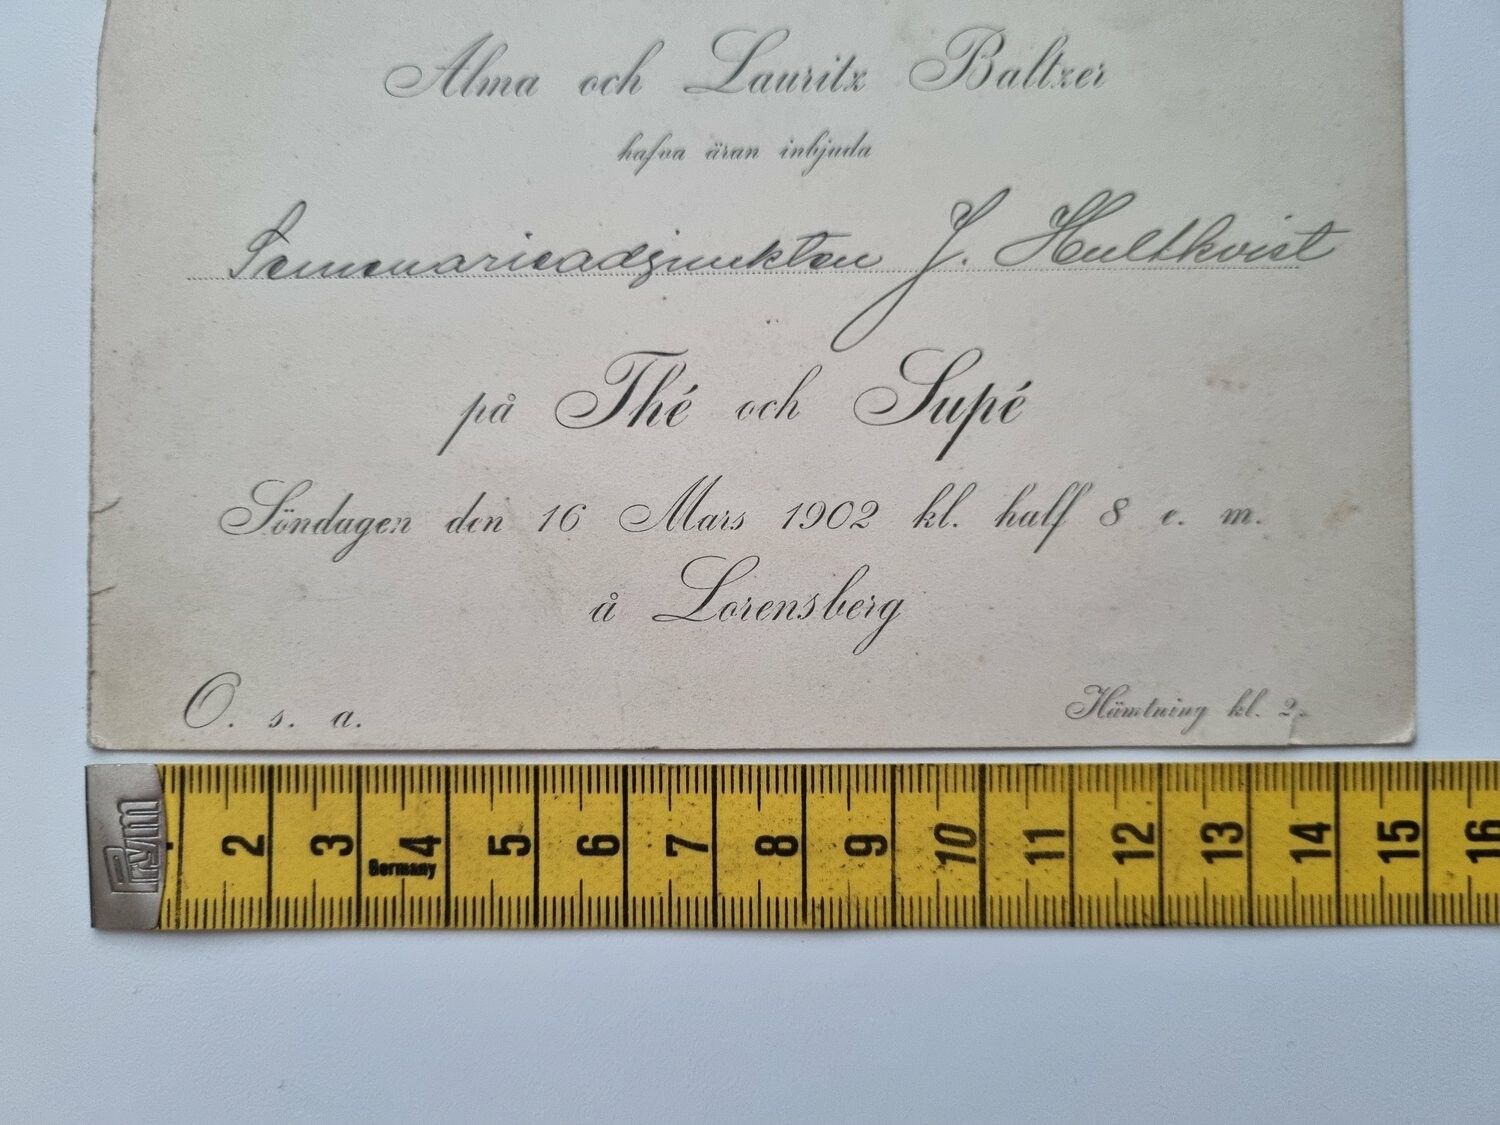 Alma och Lauritz Baltzer
hafva äran inbjuda
Semenarieadjunkten J. Hultkvist
på Thé och Supé
Söndagen den 16 Mars 1902 kl. half 8 e. m.
å Lorensberg
O. s. a.
Hämtning kl. 2.
Prym
2 3 4 5 6 7 8 9 10 11 12 13 14 15 16
Germany